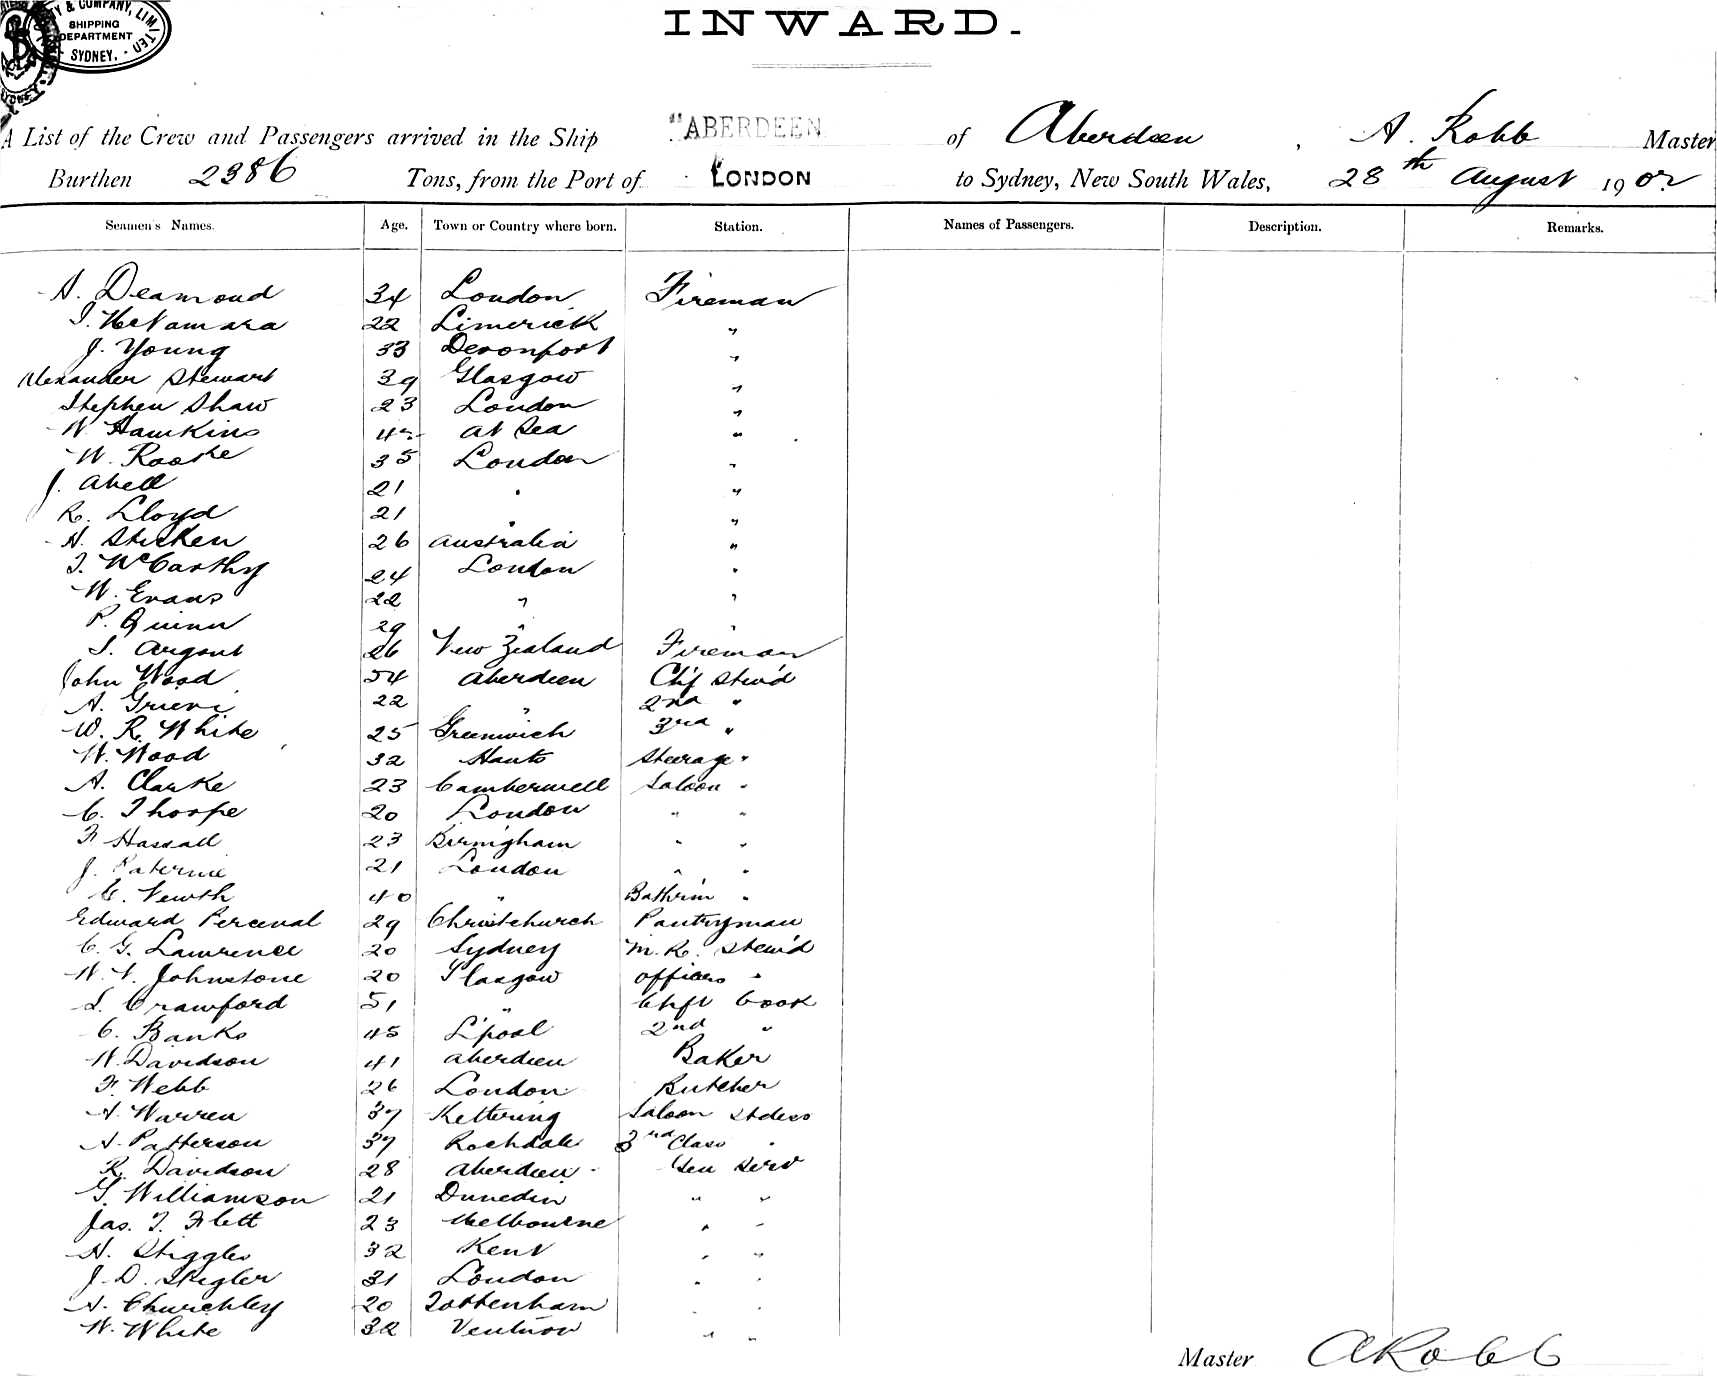 & COMPANY, LIMITED
SHIPPING
DEPARTMENT
SYDNEY.
INWARD.
A List of the Crew and Passengers arrived in the Ship "ABERDEEN of Aberdeen, A. Robb Master
Burthen 2386 Tons, from the Port of LONDON to Sydney, New South Wales, 28th August 1902
Seamen's Names. Age. Town or Country where born. Station. Names of Passengers. Description. Remarks.
A. Deamond 34 London Fireman
J. McNamara 22 Limerick "
J. Young 33 Devonport "
Alexander Stewart 39 Glasgow "
Stephen Shaw 23 London "
W. Hawkins at Sea "
W. Rooke 35 London "
J. Abell 21 " "
R. Lloyd 21 " "
A. 26 Australia "
J. McCarthy 24 London "
W. Evans 22 " "
P. Quinn 29 " "
S. Argent 26 New Zealand Fireman
John Wood 54 Aberdeen Chf Stew'd
A. 22 " 2nd "
W. R. White 25 Greenwich 3rd "
W. Wood 32 Hants Steerage "
A. Clarke 23 Camberwell Saloon "
C. Thorpe 20 London " "
F Hassall 23 Birmigham " "
J. 21 London " "
C. Newth 40 " Bathrm "
Edward Perceval 29 Christchurch Pantryman
C. G. Lawrence 20 Sydney M. R. Stew'd
W. Johnstone 20 Glasgow Officers "
S. Crawford 51 " Chft Cook
C. Banks 45 L'pool 2nd "
W. Davidson 41 Aberdeen Baker
F. Webb 26 London Butcher
A. Warren 37 Kettering Saloon Stdess
A. Patterson 37 Rochdale 3rd Class "
R. Davidson 28 Aberdeen Gen Serv
G. Williamson 21 Dunedin " "
Jas. T. Flett 23 Melbourne " "
A. Stiggles 32 Kent " "
J. D. Stigler 31 London " "
A. Churchley 20 Tottenham " "
W. White 32 Ventnor " "
Master A Robb